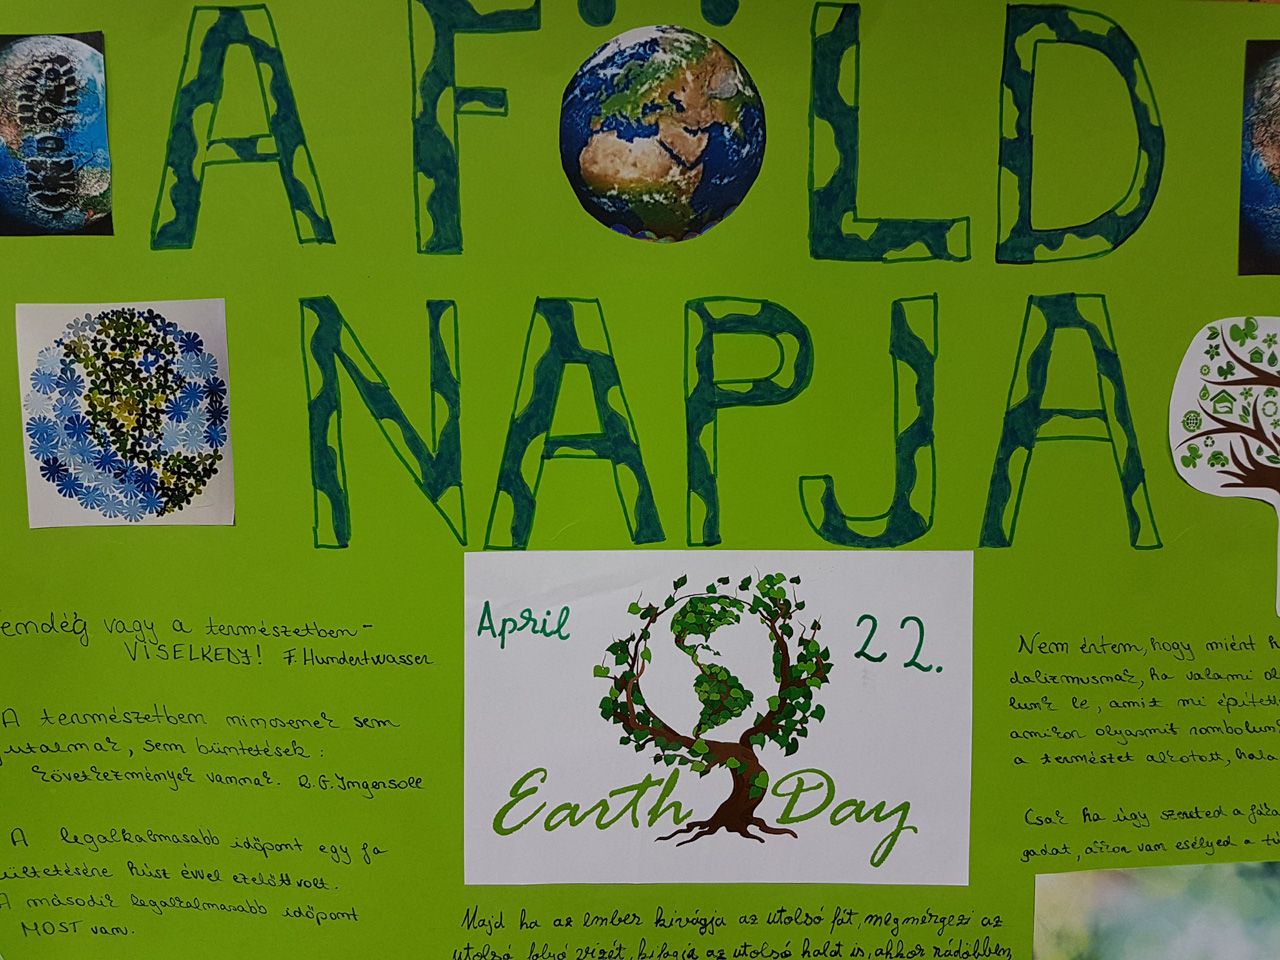 A FÖLD
NAPJA
April 22.
Earth Day
vagy a természetben -
VISELKEDJ! F. Hundertwasser
A természetben nincsenek sem
jutalmak, sem büntetések:
következmények vannak. R. G. Ingersoll
A legalkalmasabb időpont egy fa
ültetésére húsz évvel ezelőtt volt.
A második legalkalmasabb időpont
MOST van.
Nem értem, hogy miért
ha valami
le, amit mi
amikor olyasmit
a természet alkotott,
Csak ha úgy szereted a
van esélyed a
Majd ha az ember kivágja az utolsó fát, megmérgezi az
utolsó folyó vizét, kifogja az utolsó halat is, akkor rádöbben,